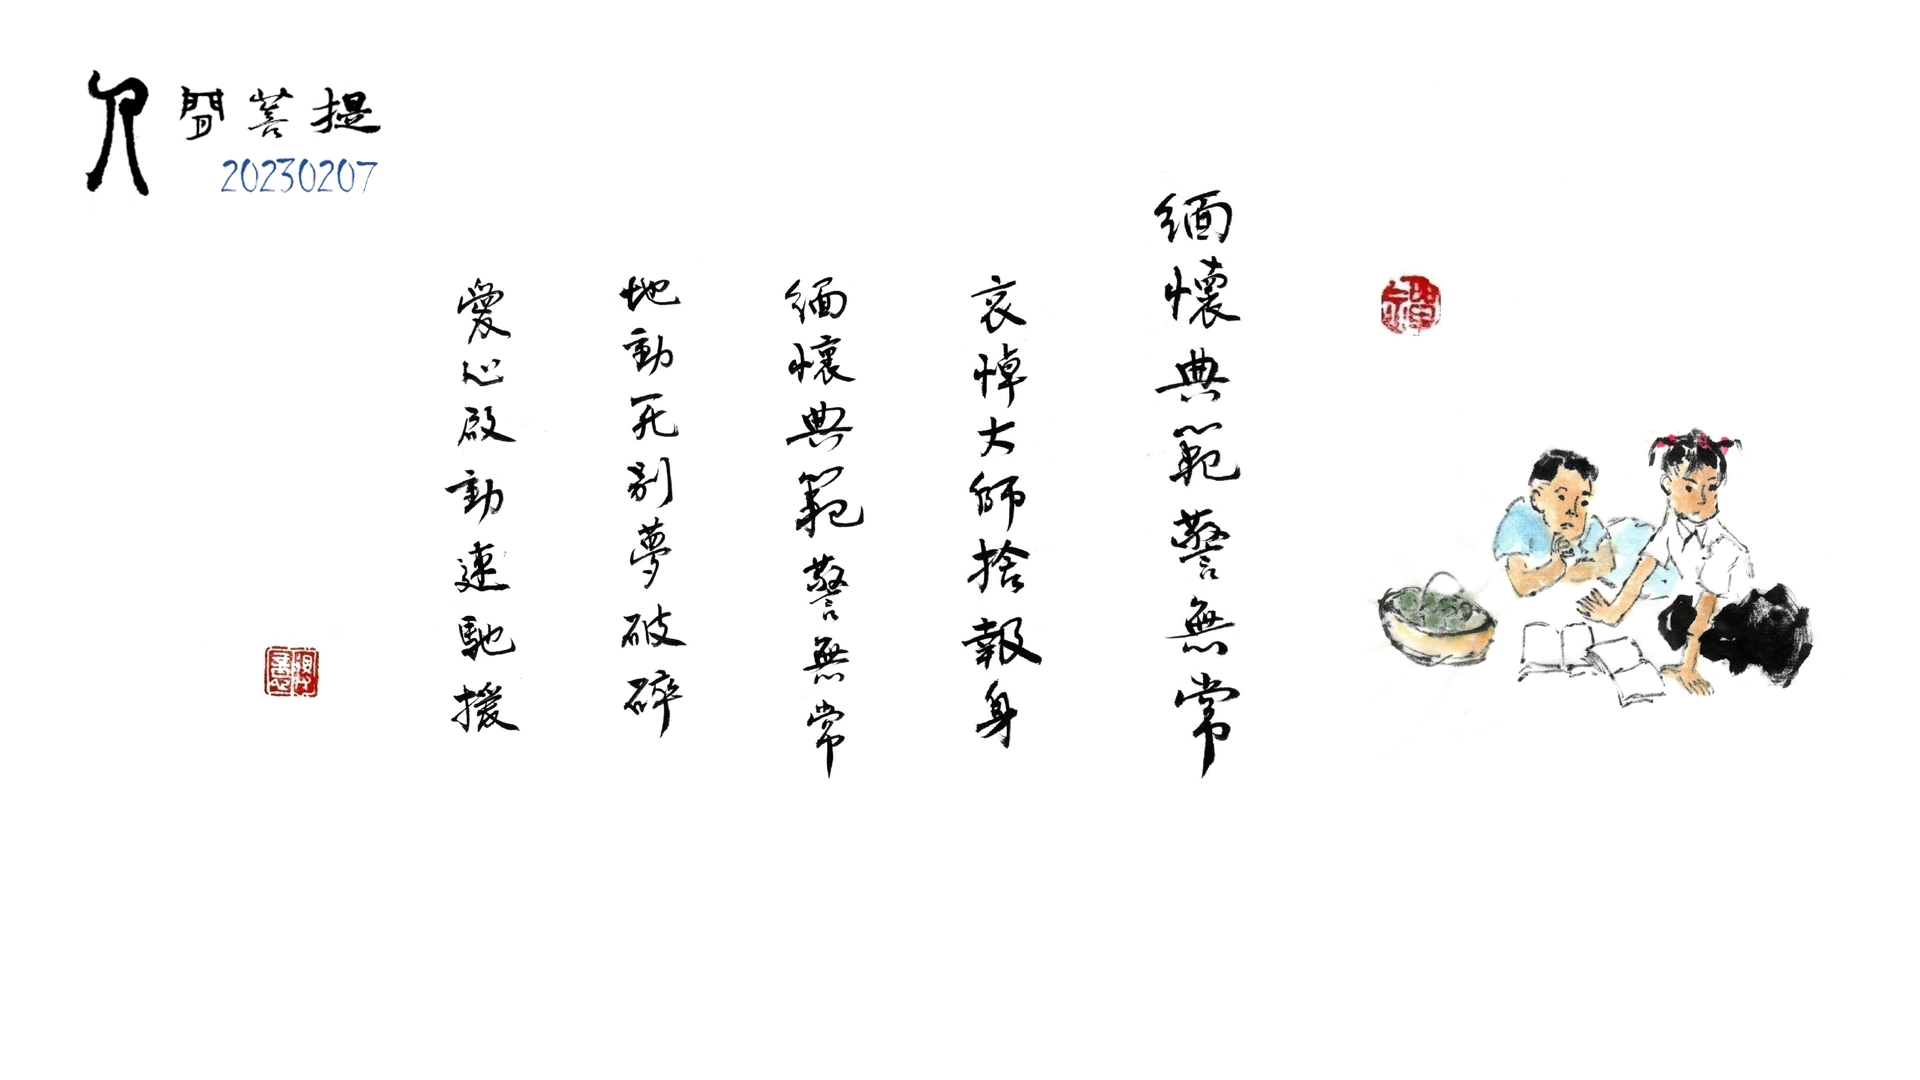 人間菩提
20230207
緬懷典範警無常
哀悼大師捨報身
緬懷典範警無常
地動死別夢破碎
愛心啟動速馳援